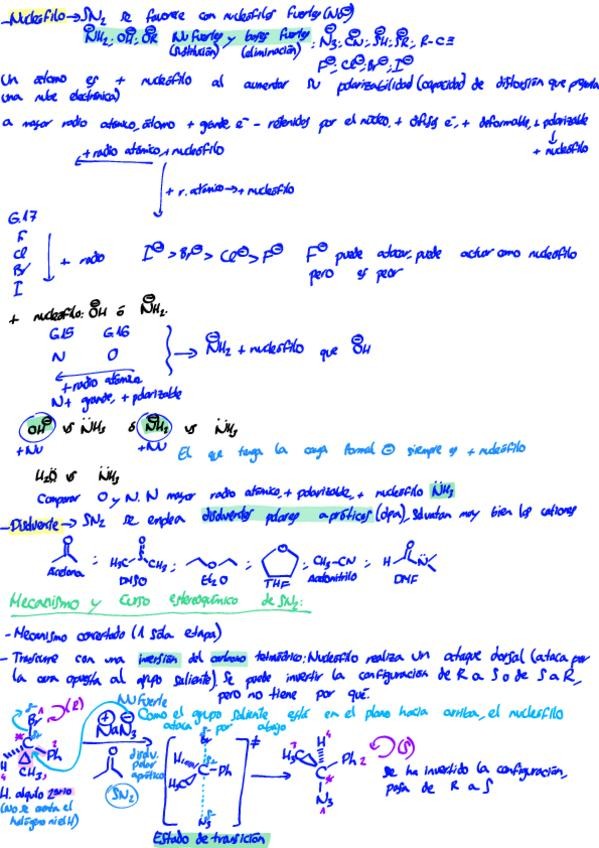 -Nucleófilo → SN2 se favorece con nucleófilos fuertes (Nu⊖)
⊖NH2; ⊖OH; ⊖OR Nu fuertes y bases fuertes; ⊖N3; ⊖CN; ⊖SH; ⊖SR; R-C≡
(sustitución) (eliminación) F⊖, Cl⊖, Br⊖, I⊖
Un átomo es + nucleófilo al aumentar su polarizabilidad (capacidad de distorsión que presenta
una nube electrónica)
a mayor radio atómico, átomo + grande, e⁻ - retenidos por el núcleo, + difusos e⁻, + deformable, + polarizable
↓
+ nucleófilo
+ radio atómico, + nucleófilo
+ r. atómico → + nucleófilo
G.17
F
Cl
Br
I
+ radio
I⊖ > Br⊖ > Cl⊖ > F⊖
F⊖ puede atacar, puede actuar como nucleófilo
pero es peor
+ nucleófilo: ⊖OH ó ⊖NH2
G15 G16
N O
→ ⊖NH2 + nucleófilo que ⊖OH
+ radio atómico
N + grande, + polarizable
OH⊖ vs NH3 ó ⊖NH2 vs NH3
+Nu +Nu El que tenga la carga formal ⊖ siempre es + nucleófilo
H2O vs NH3
Comparar O y N. N mayor radio atómico, + polarizable, + nucleófilo NH3
-Disolvente → SN2 se emplea disolventes polares apróticos (dpa), solvatan muy bien los cationes
O ; O ; O ; O ; CH3-CN ; O
H3C S CH3 H N
Acetona DMSO Et2O THF Acetonitrilo DMF
Mecanismo y curso estereoquímico de SN2:
- Mecanismo concertado (1 sola etapa)
- Transcurre con una inversión del carbono tetraédrico: Nucleófilo realiza un ataque dorsal (ataca por
la cara opuesta al grupo saliente). Se puede invertir la configuración de R a S o de S a R,
pero no tiene por qué.
Nu fuerte
Como el grupo saliente está en el plano hacia arriba, el nucleófilo
ataca por abajo
Br (R)
H C Ph 2
CH3
⊕ ⊖
NaN3
disolv.
polar
aprótico
SN2
Br
H C Ph
H3C
N3
≠
H
H3C C Ph 2
N3
(S)
se ha invertido la configuración,
pasa de R a S
H. alquilo 2ario
(No se cuenta el
halógeno ni el H)
Estado de transición